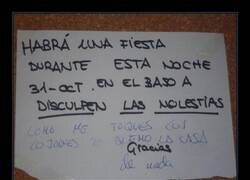 HABRÁ UNA FIESTA
DURANTE ESTA NOCHE
31-OCT. EN EL BAJO A
DISCULPEN LAS MOLESTIAS
COMO ME TOQUES LOS
COJONES TE QUEMO LA CASA
Gracias
de nada